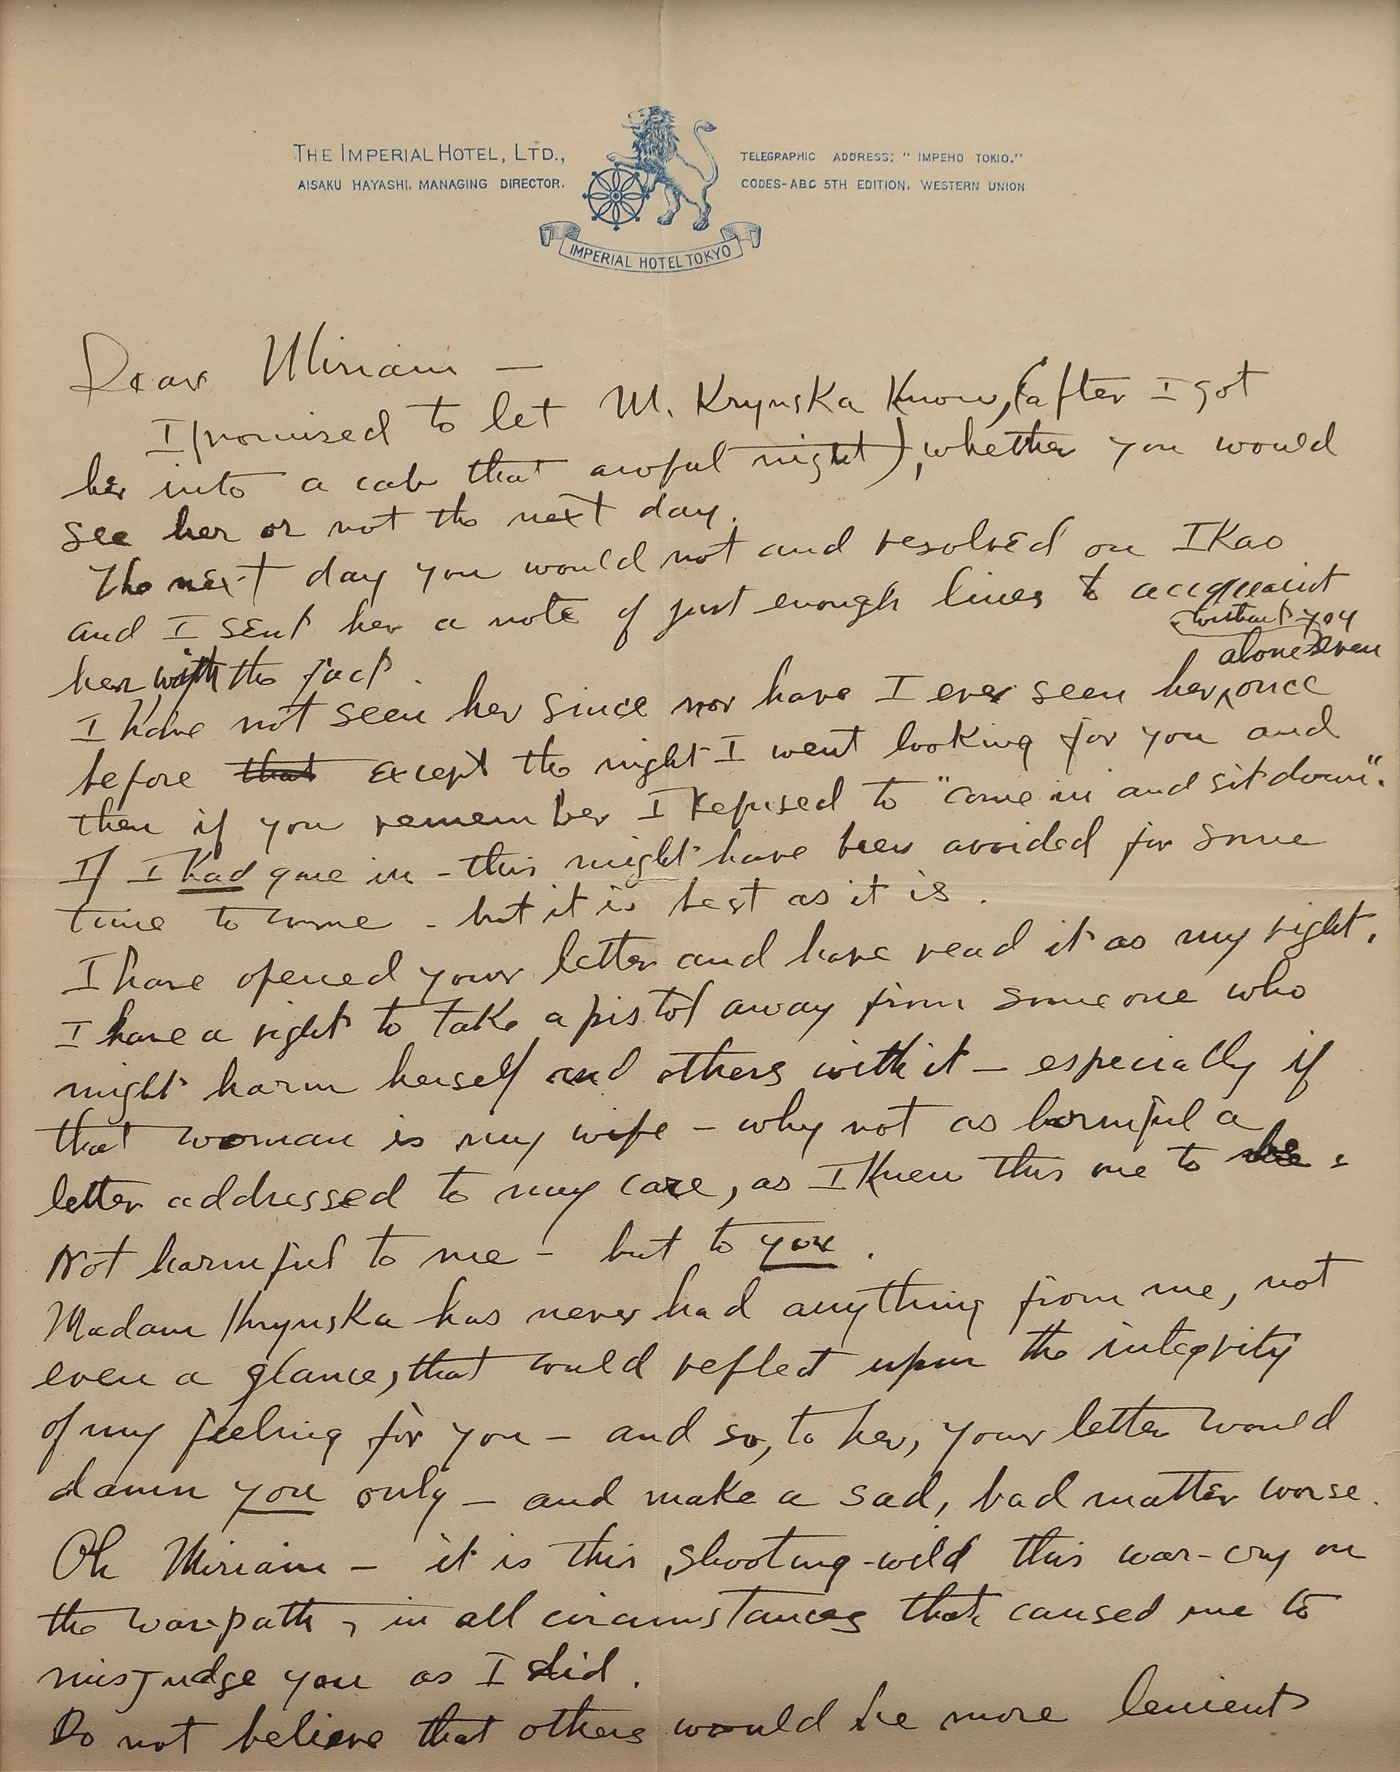 THE IMPERIAL HOTEL, LTD.,
AISAKU HAYASHI. MANAGING DIRECTOR.
TELEGRAPHIC ADDRESS: "IMPEHO TOKIO."
CODES-ABC 5TH EDITION. WESTERN UNION
IMPERIAL HOTEL TOKYO
Dear Miriam —
I promised to let M. Krynska know, (after I got
her into a cab that awful night), whether you would
see her or not the next day.
The next day you would not and resolved on Ikao
and I sent her a note of just enough lines to acquaint
her with the fact.
without you
alone even
I have not seen her since nor have I ever seen her, once
before that except the night I went looking for you and
then if you remember I refused to "come in and sit down".
If I had gone in - this might have been avoided for some
time to come - but it is best as it is.
I have opened your letter and have read it as my right.
I have a right to take a pistol away from someone who
might harm herself and others with it — especially if
that woman is my wife - why not as harmful a
letter addressed to my care, as I knew this one to be.
Not harmful to me - but to you.
Madam Krynska has never had anything from me, not
even a glance, that would reflect upon the integrity
of my feeling for you — and so, to her, your letter would
damn you only — and make a sad, bad matter worse.
Oh Miriam — it is this shooting-wild this war-cry on
the warpath, in all circumstances that caused me to
misjudge you as I did.
Do not believe that others would be more lenient